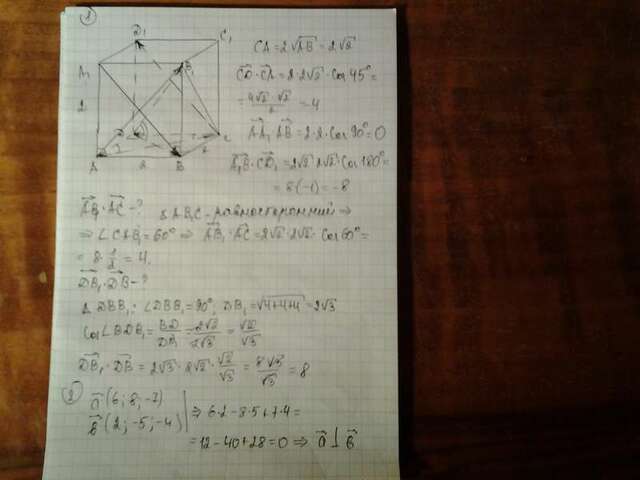 1
D₁ C₁
A₁ B₁
2
D C
A 2 B
CA = 2√AB = 2√2
CD · CA = 2 · 2√2 · cos 45° =
= 4√2 · √2 / 2 = 4
AA₁ · AB = 2 · 2 · cos 90° = 0
A₁B · CD₁ = 2√2 · 2√2 · cos 180° =
= 8(-1) = -8
AB₁ · AC - ? Δ AB₁C - равносторонний ⇒
⇒ ∠CAB₁ = 60° ⇒ AB₁ · AC = 2√2 · 2√2 · cos 60° =
= 8 · 1/2 = 4.
DB₁ · DB - ?
Δ DBB₁: ∠DBB₁ = 90°; DB₁ = √4+4+4 = 2√3
cos ∠BDB₁ = BD / DB = 2√2 / 2√3 = √2 / √3
DB₁ · DB = 2√3 · 2√2 · √2 / √3 = 8√3 / √3 = 8
2
a (6; 8; -7)
b (2; -5; -4) ⇒ 6·2 - 8·5 + 7·4 =
= 12 - 40 + 28 = 0 ⇒ a ⊥ b